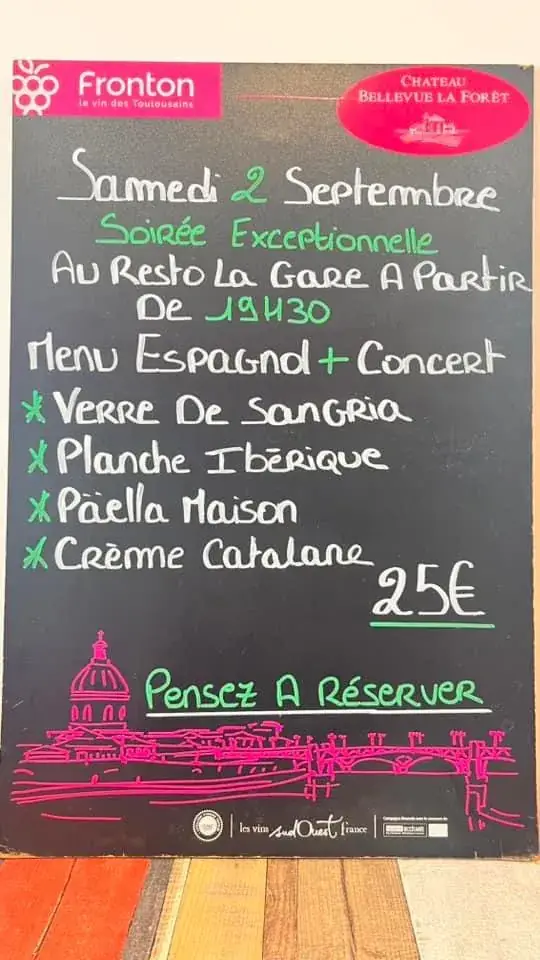 Fronton
le vin des Toulousains
CHATEAU
BELLEVUE LA FORÊT
Samedi 2 Septembre
Soirée Exceptionnelle
Au Resto La Gare A Partir
De 19H30
Menu Espagnol + Concert
* Verre De Sangria
* Planche Ibérique
* Päella Maison
* Crème Catalane
25€
Pensez A Réserver
les vins sudOuest france